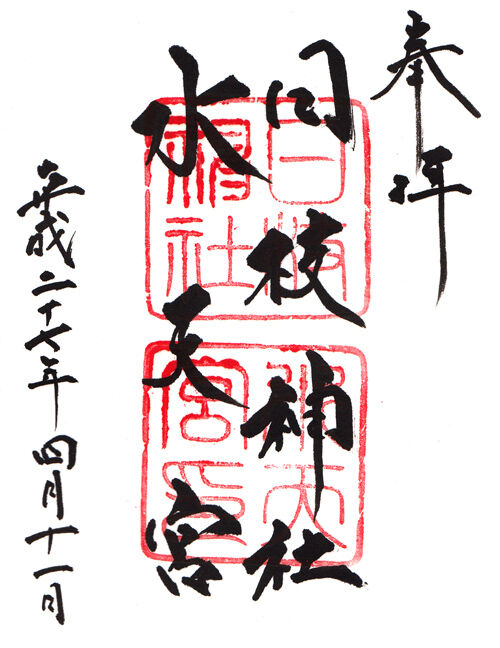 奉拝
日枝神社
水天宮
平成二十七年四月十一日
日枝神社
水天宮印